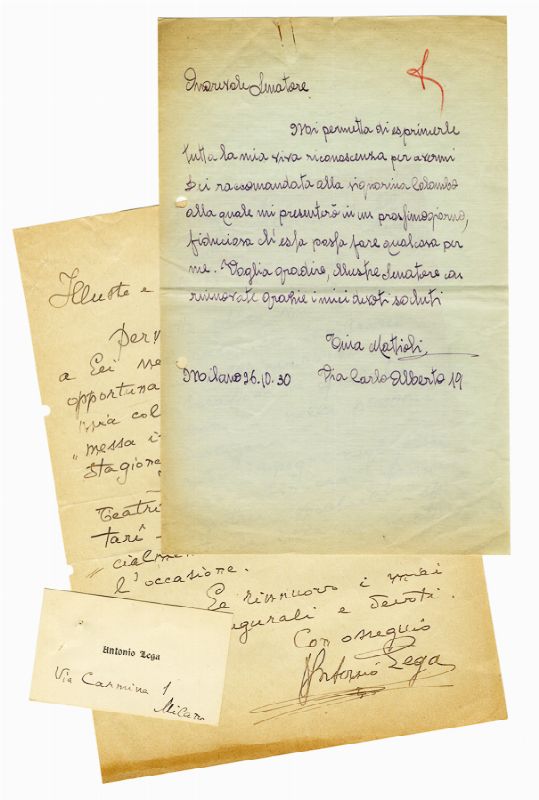 Onorevole Senatore
Mi permetta di esprimerle
tutta la mia viva riconoscenza per avermi
Lei raccomandata alla signorina Colombo
alla quale mi presenterò in un prossimo giorno,
fiduciosa ch'essa possa fare qualcosa per
me. Voglia gradire, Illustre Senatore con
rinnovate grazie i miei devoti saluti
Tina Mattioli
Milano 26.10.30 Via Carlo Alberto 19
Illustre e
Perm
a Lei me
opportuna
mia col
"messa i
stagione
Teatri
tari
cialmen
l'occasione.
Le rinnovo i miei
augurali e devoti.
Con ossequio
Antonio Lega
Antonio Lega
Via Carmine 1
Milano